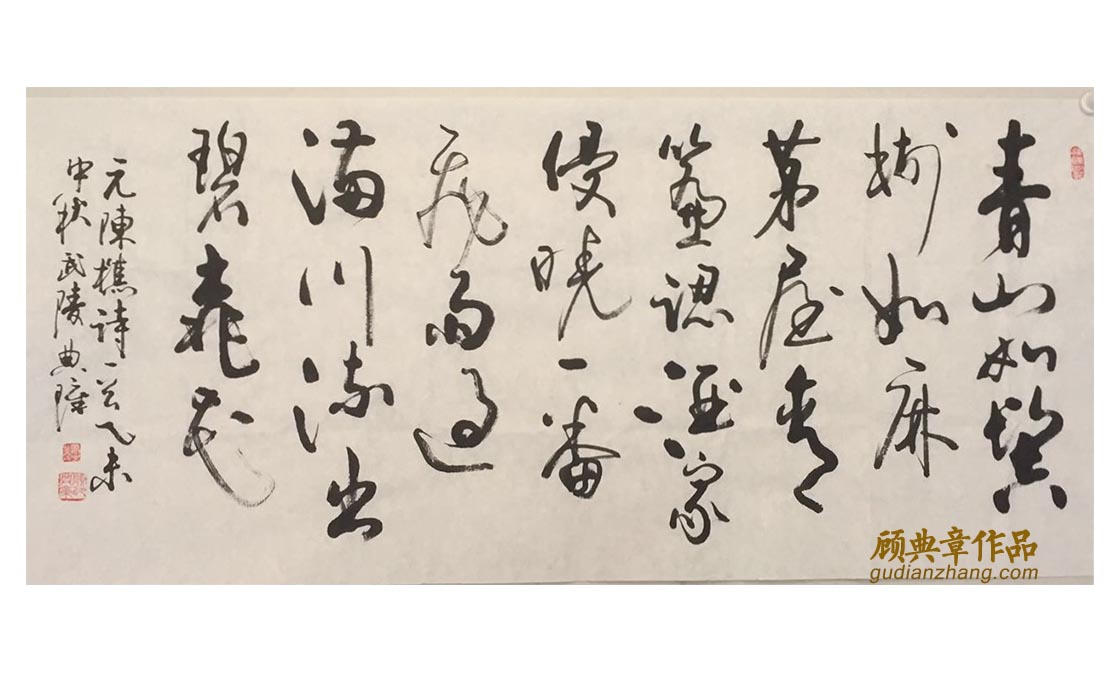 青山如鬢
樹如麻
茅屋青
簾認酒家
侵曉一番
飛雨過
滿川流出
碧桃花
元陳樵詩一首乙未
中秋武陵典璋
顾典章作品
gudianzhang.com